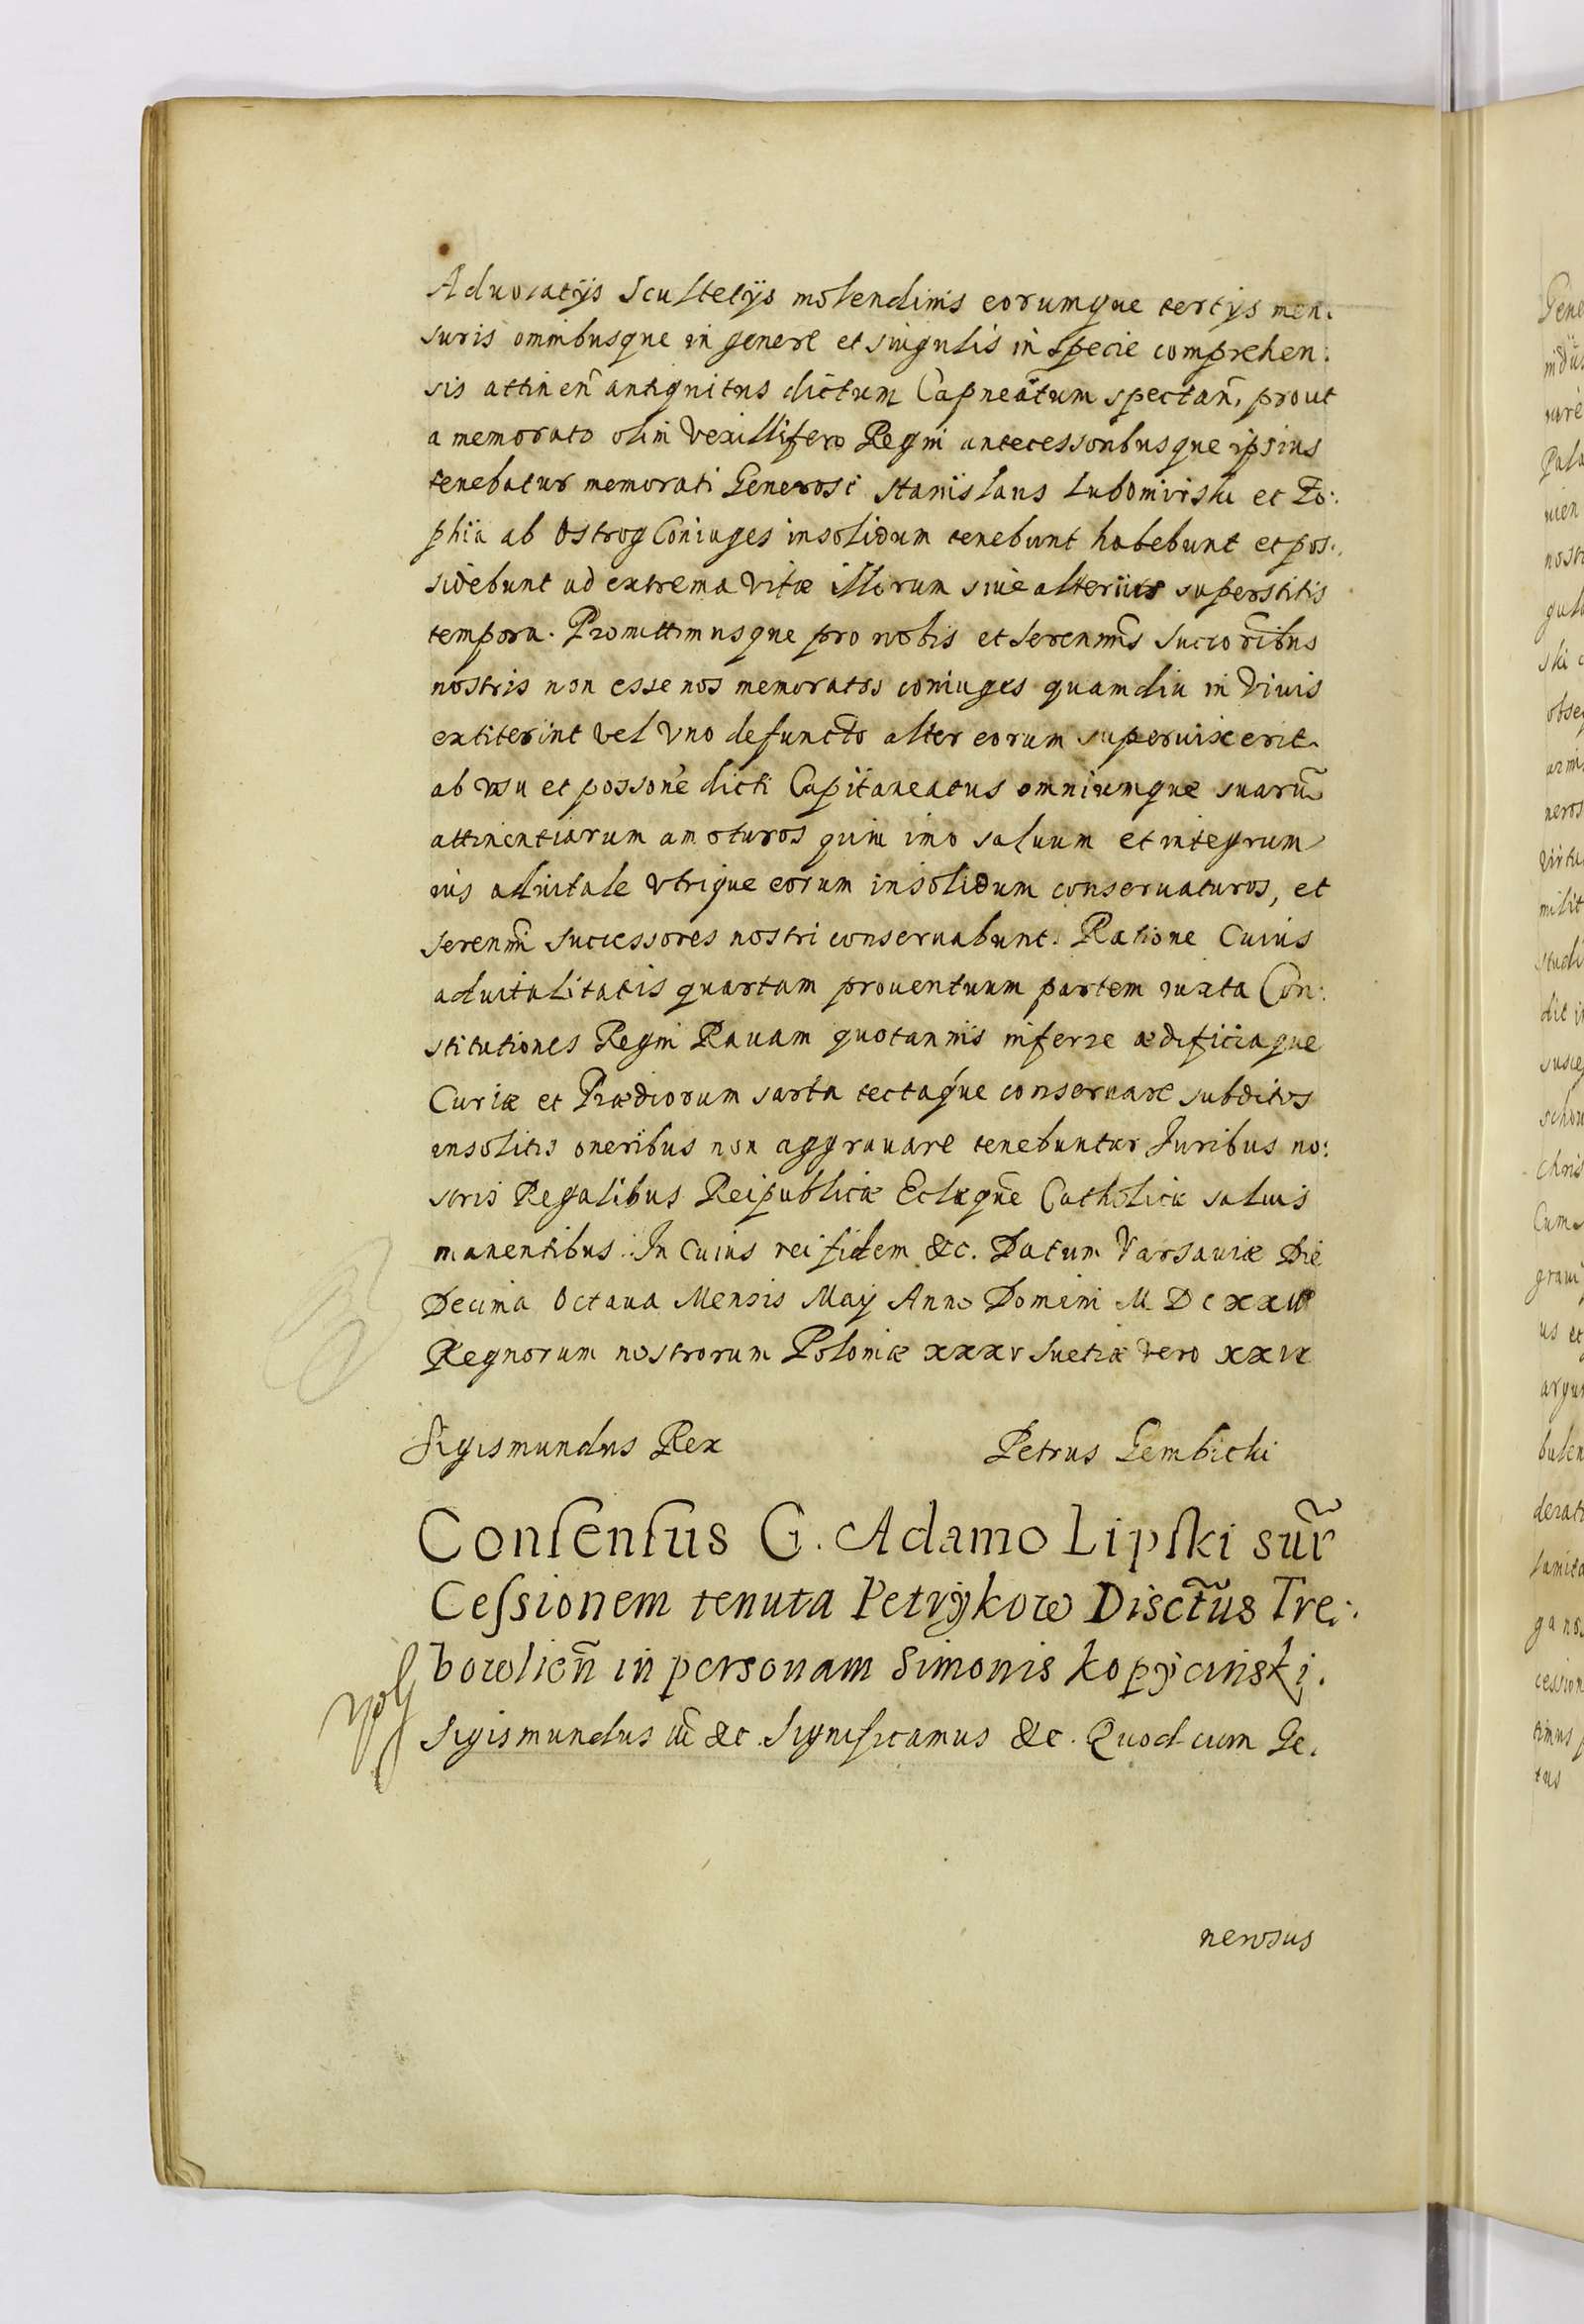 Aduocatijs Scultetijs molendinis eorumque tertijs men:
suris omnibusque in genere et singulis in specie comprehen:
sis attinen̄ antiquitus dictum Capneātum spectan̄, prout
a memorato olim Vexillifero Regni antecessoribusque ipsius
tenebatur memorati Generosi Stanislaus Lubomirski et Zo:
phia ab Ostrog Coniuges insolidum tenebunt habebunt et pos:
sidebunt ad extrema vitæ illorum siue alterius superstitis
tempora. Promittimusque pro nobis et Serenmīs Succoribus
nostris non esse nos memoratos coniuges quamdiu in viuis
extiterint vel vno defuncto alter eorum superuixerit
ab vsu et possone dicti Capitaneatus omniumque suarū
attinentiarum amoturos quin imo saluum et integrum
ius aduitale vtrique eorum insolidum conseruaturos, et
Serenmī Successores nostri conseruabunt. Ratione Cuius
aduitalitatis quartam prouentuum partem iuxta Con:
stitutiones Regni Rauam quotannis inferre ædificiaque
Curiæ et Prædiorum sarta tectaque conseruare subditos
insolitis oneribus non aggrauare tenebuntur Juribus no:
stris Regalibus Reipublicæ Eclæque Catholicæ saluis
manentibus. In Cuius rei fidem &c. Datum Varsauiæ Die
Decima Octaua Mensis Maij Anno Domini M D C XXII
Regnorum nostrorum Poloniæ xxxv Suetiæ vero xxix
Sigismundus Rex Petrus Gembicki
Consensus G. Adamo Lipski sur̄
Cessionem tenuta Petrÿkow Disctūs Tre:
bowlien̄ in personam Simonis Kopÿcinski.
Sigismundus iii &c. Significamus &c. Quod cum Ge:
nerosus